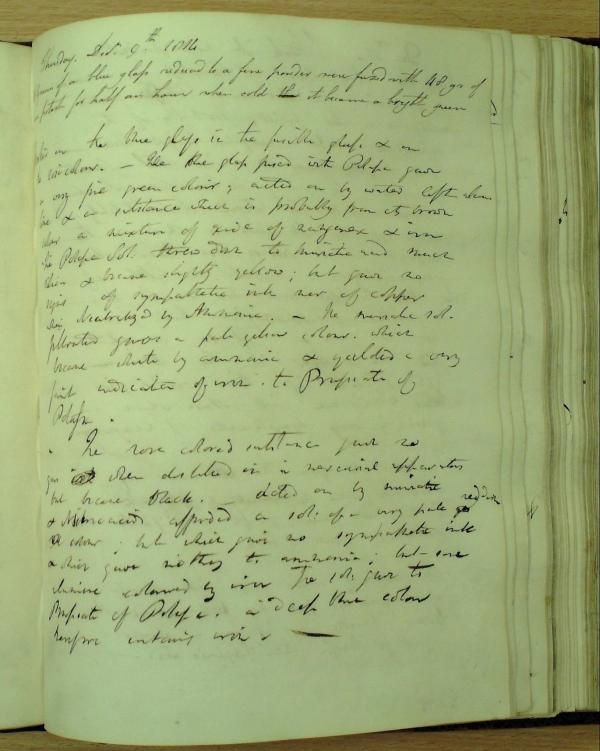 Thursday. Dec. 9th 1814
of a blue glass reduced to a fine powder were fused with 48 grs of
potash for half an hour when cold it became a bright green
on the blue glass is the fusible glass & an
colour. — The blue glass fused with Potassa gave
a very fine green colour; acted on by water left
& a substance which is probably from its brown
colour a mixture of oxide of manganese & iron
the Potassa Sol. threw down to muriatic acid much
& became slightly yellow; but gave no
signs of sympathetic ink nor of copper
being Neutralized by Ammonia. — The muriatic sol.
filtrated gave a pale yellow colour. which
became white by ammonia & yielded a very
faint indication of iron. to Prussiate of
Potassa.
The rose colored substance gave no
gas when distilled in a mercurial apparatus
but became black. — acted on by muriatic
& Nitric acid afforded a sol: of a very pale reddish
colour; but which gave no sympathetic ink
& which gave nothing to ammonia; but some
coloured by iron The sol: gave to
Prussiate of Potassa. a deep blue colour
therefore contains iron.